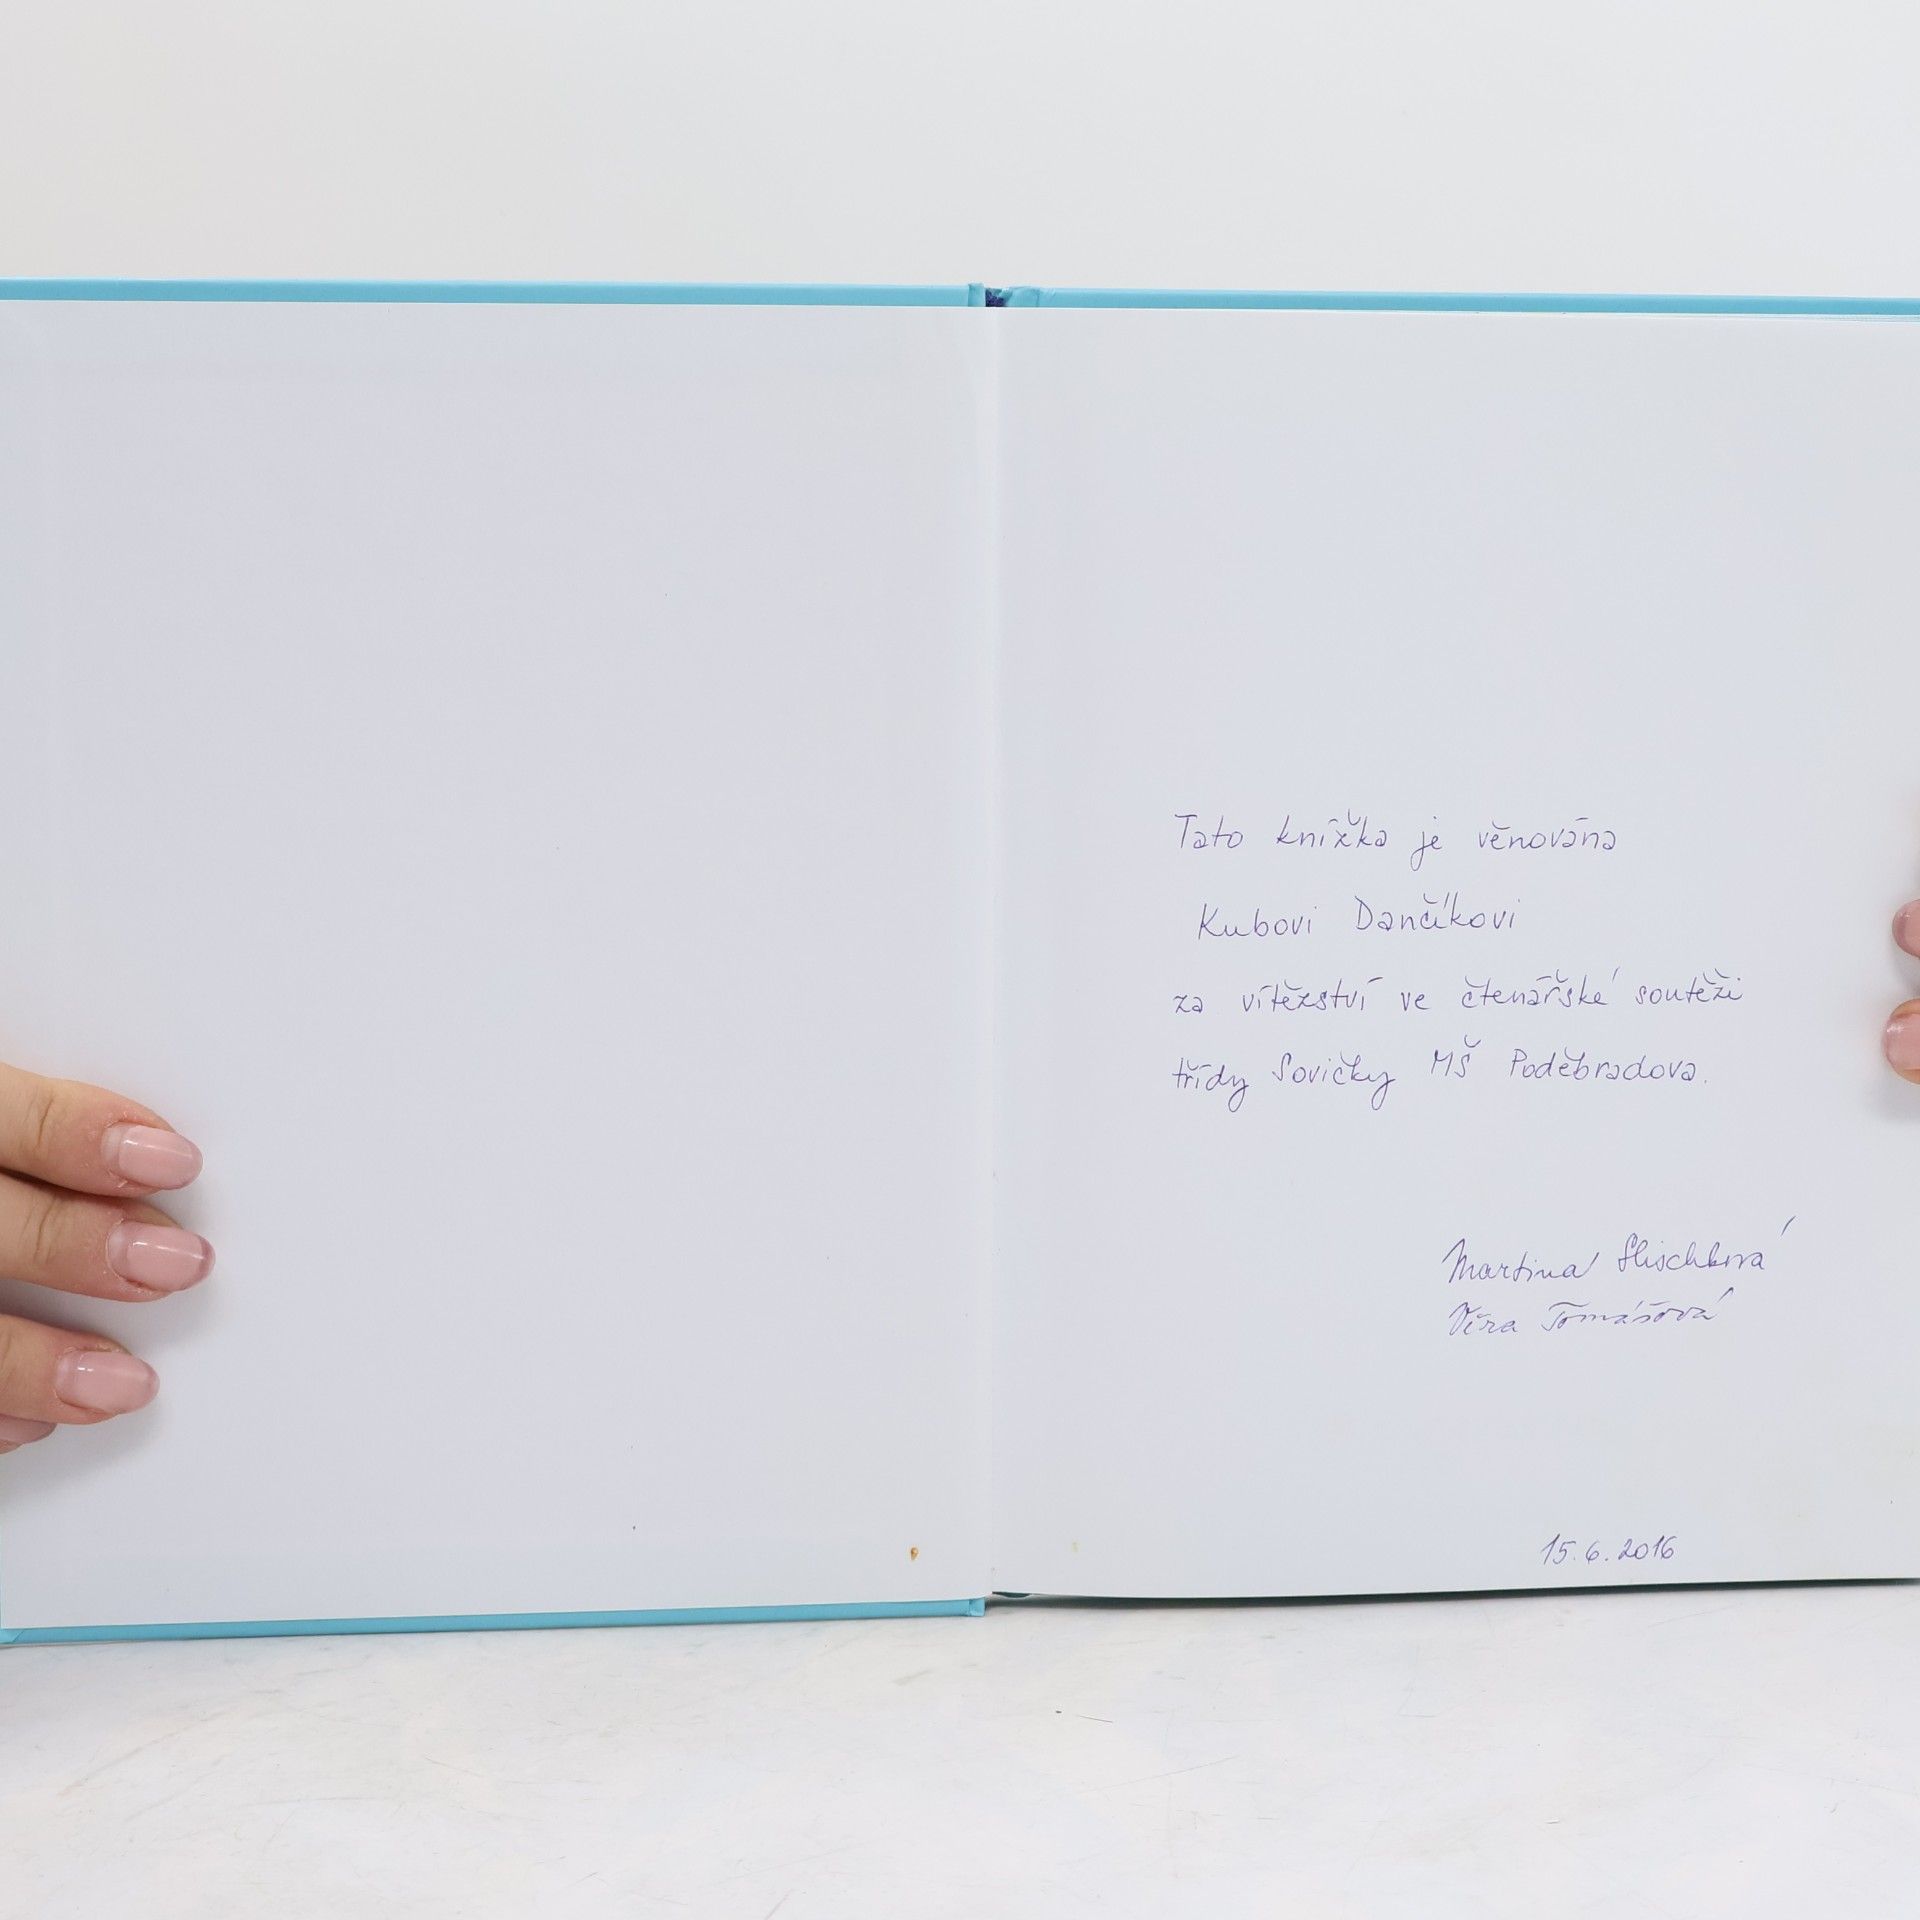 Tato knížka je věnována
Kubovi Dančíkovi
za vítězství ve čtenářské soutěži
třídy Sovičky MŠ Poděbradova.
Martina
Věra Tomášová
15.6.2016